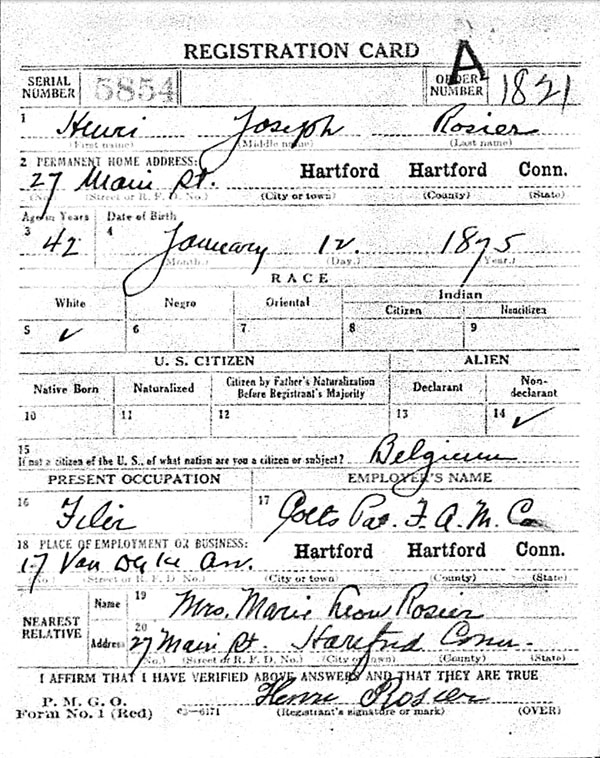 REGISTRATION CARD
A
SERIAL NUMBER 5854 ORDER NUMBER 1821
1 Henri Joseph Rosier
(First name) (Middle name) (Last name)
2 PERMANENT HOME ADDRESS:
27 Main St. Hartford Hartford Conn.
(No.) (Street or R. F. D. No.) (City or town) (County) (State)
Age in Years Date of Birth
3 42 4 January 12. 1875
(Month.) (Day.) (Year.)
RACE
White Negro Oriental Indian
Citizen Noncitizen
5 ✓ 6 7 8 9
U. S. CITIZEN ALIEN
Native Born Naturalized Citizen by Father's Naturalization Before Registrant's Majority Declarant Non-declarant
10 11 12 13 14 ✓
15
If not a citizen of the U. S., of what nation are you a citizen or subject? Belgium
PRESENT OCCUPATION EMPLOYER'S NAME
16 Filer 17 Colts Pat. F. A. M. Co
18 PLACE OF EMPLOYMENT OR BUSINESS:
17 Van Dyke Av. Hartford Hartford Conn.
(No.) (Street or R. F. D. No.) (City or town) (County) (State)
NEAREST RELATIVE
Name 19 Mrs. Marie Leon Rosier
Address 20 27 Main St. Hartford Conn.
(No.) (Street or R. F. D. No.) (City or town) (County) (State)
I AFFIRM THAT I HAVE VERIFIED ABOVE ANSWERS AND THAT THEY ARE TRUE
P. M. G. O.
Form No. 1 (Red) 03—6171 Henri Rosier
(Registrant's signature or mark) (OVER)